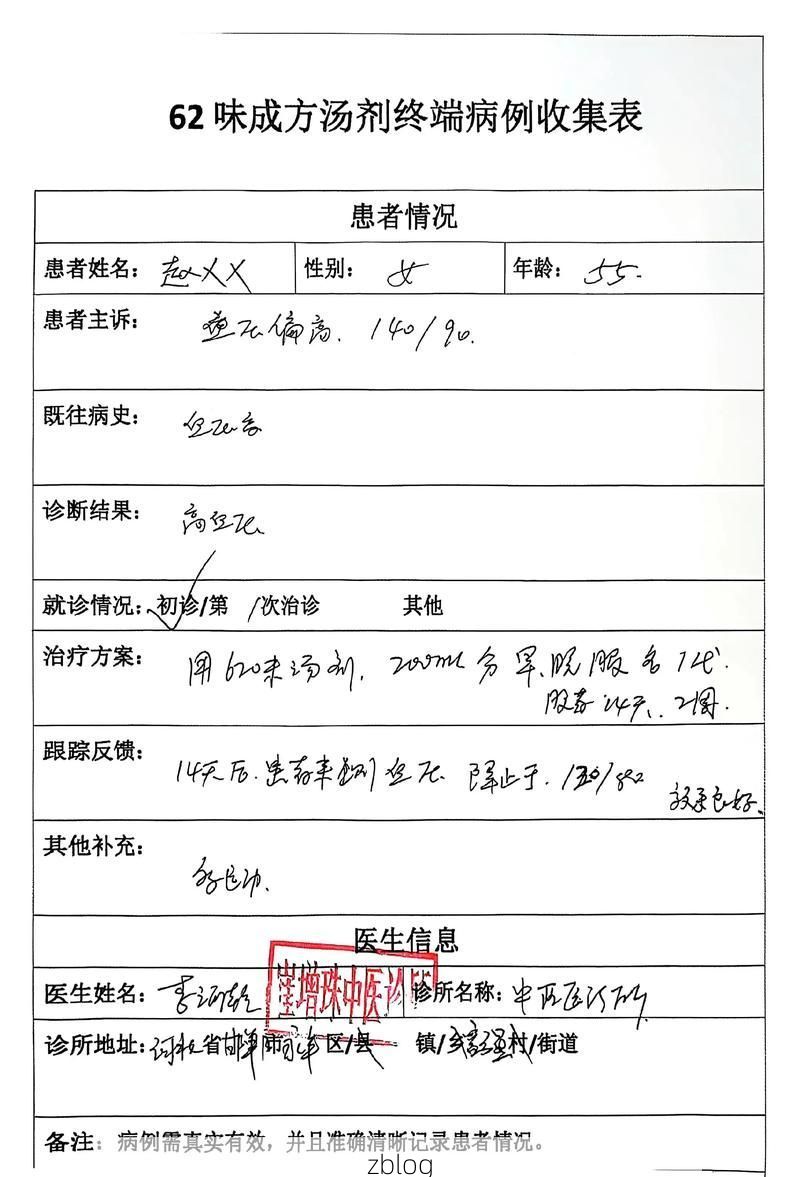 62味成方汤剂终端病例收集表
患者情况
患者姓名：赵XX 性别：女 年龄：55.
患者主诉：血压偏高. 140/90.
既往病史：血压高
诊断结果：高血压
就诊情况：初诊/第 /次治诊 其他
治疗方案：用620末汤剂. 200ml 分早、晚服各1代.
服药14天、2周.
跟踪反馈：14天后. 患者来 血压
效果良好、
其他补充：多运动.
医生信息
医生姓名：李 诊所名称：中医诊所
崔增珠中医诊所
诊所地址：河北省邯郸市 区/县 镇/乡 村/街道
备注：病例需真实有效，并且准确清晰记录患者情况。
zblog